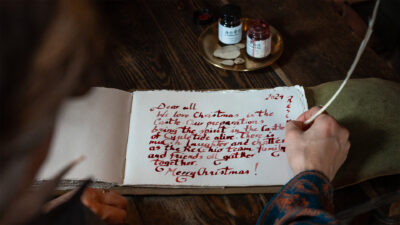 2024
Dear all
We love Christmas in the
Castle. Our preparations
bring the spirit in the Castle
of Yuletide alive. There is
much laughter and chatter
as the family
and friends all gather
together.
Merry Christmas!